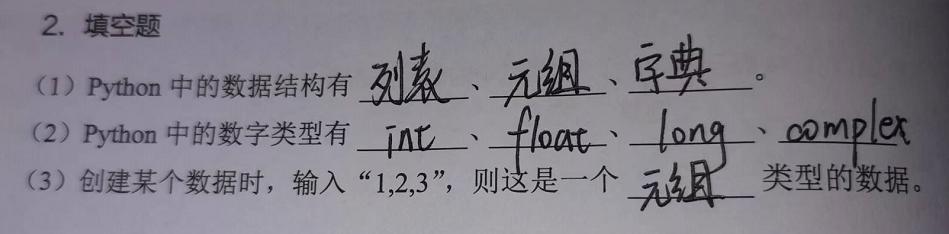 2. 填空题
（1）Python 中的数据结构有 列表、元组、字典。
（2）Python 中的数字类型有 int、float、long、complex
（3）创建某个数据时，输入“1,2,3”，则这是一个 元组 类型的数据。